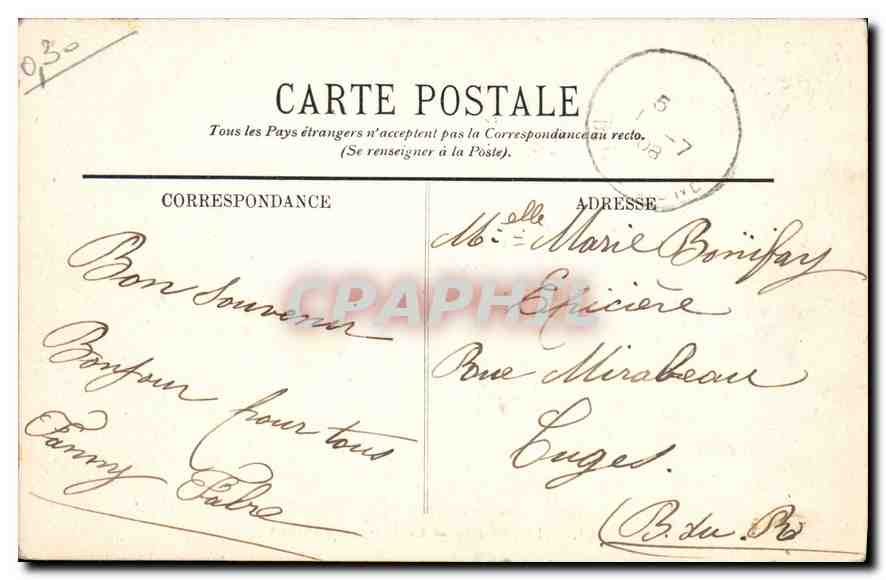 0,30
CARTE POSTALE
Tous les Pays étrangers n'acceptent pas la Correspondance au recto.
(Se renseigner à la Poste).
5 - 7
08
CORRESPONDANCE
ADRESSE
Bon Souvenir
Bonjour pour tous
Fanny Fabre
Melle Marie Bonifay
Epicière
Rue Mirabeau
Cuges.
(B. du. R
CPAPHIL